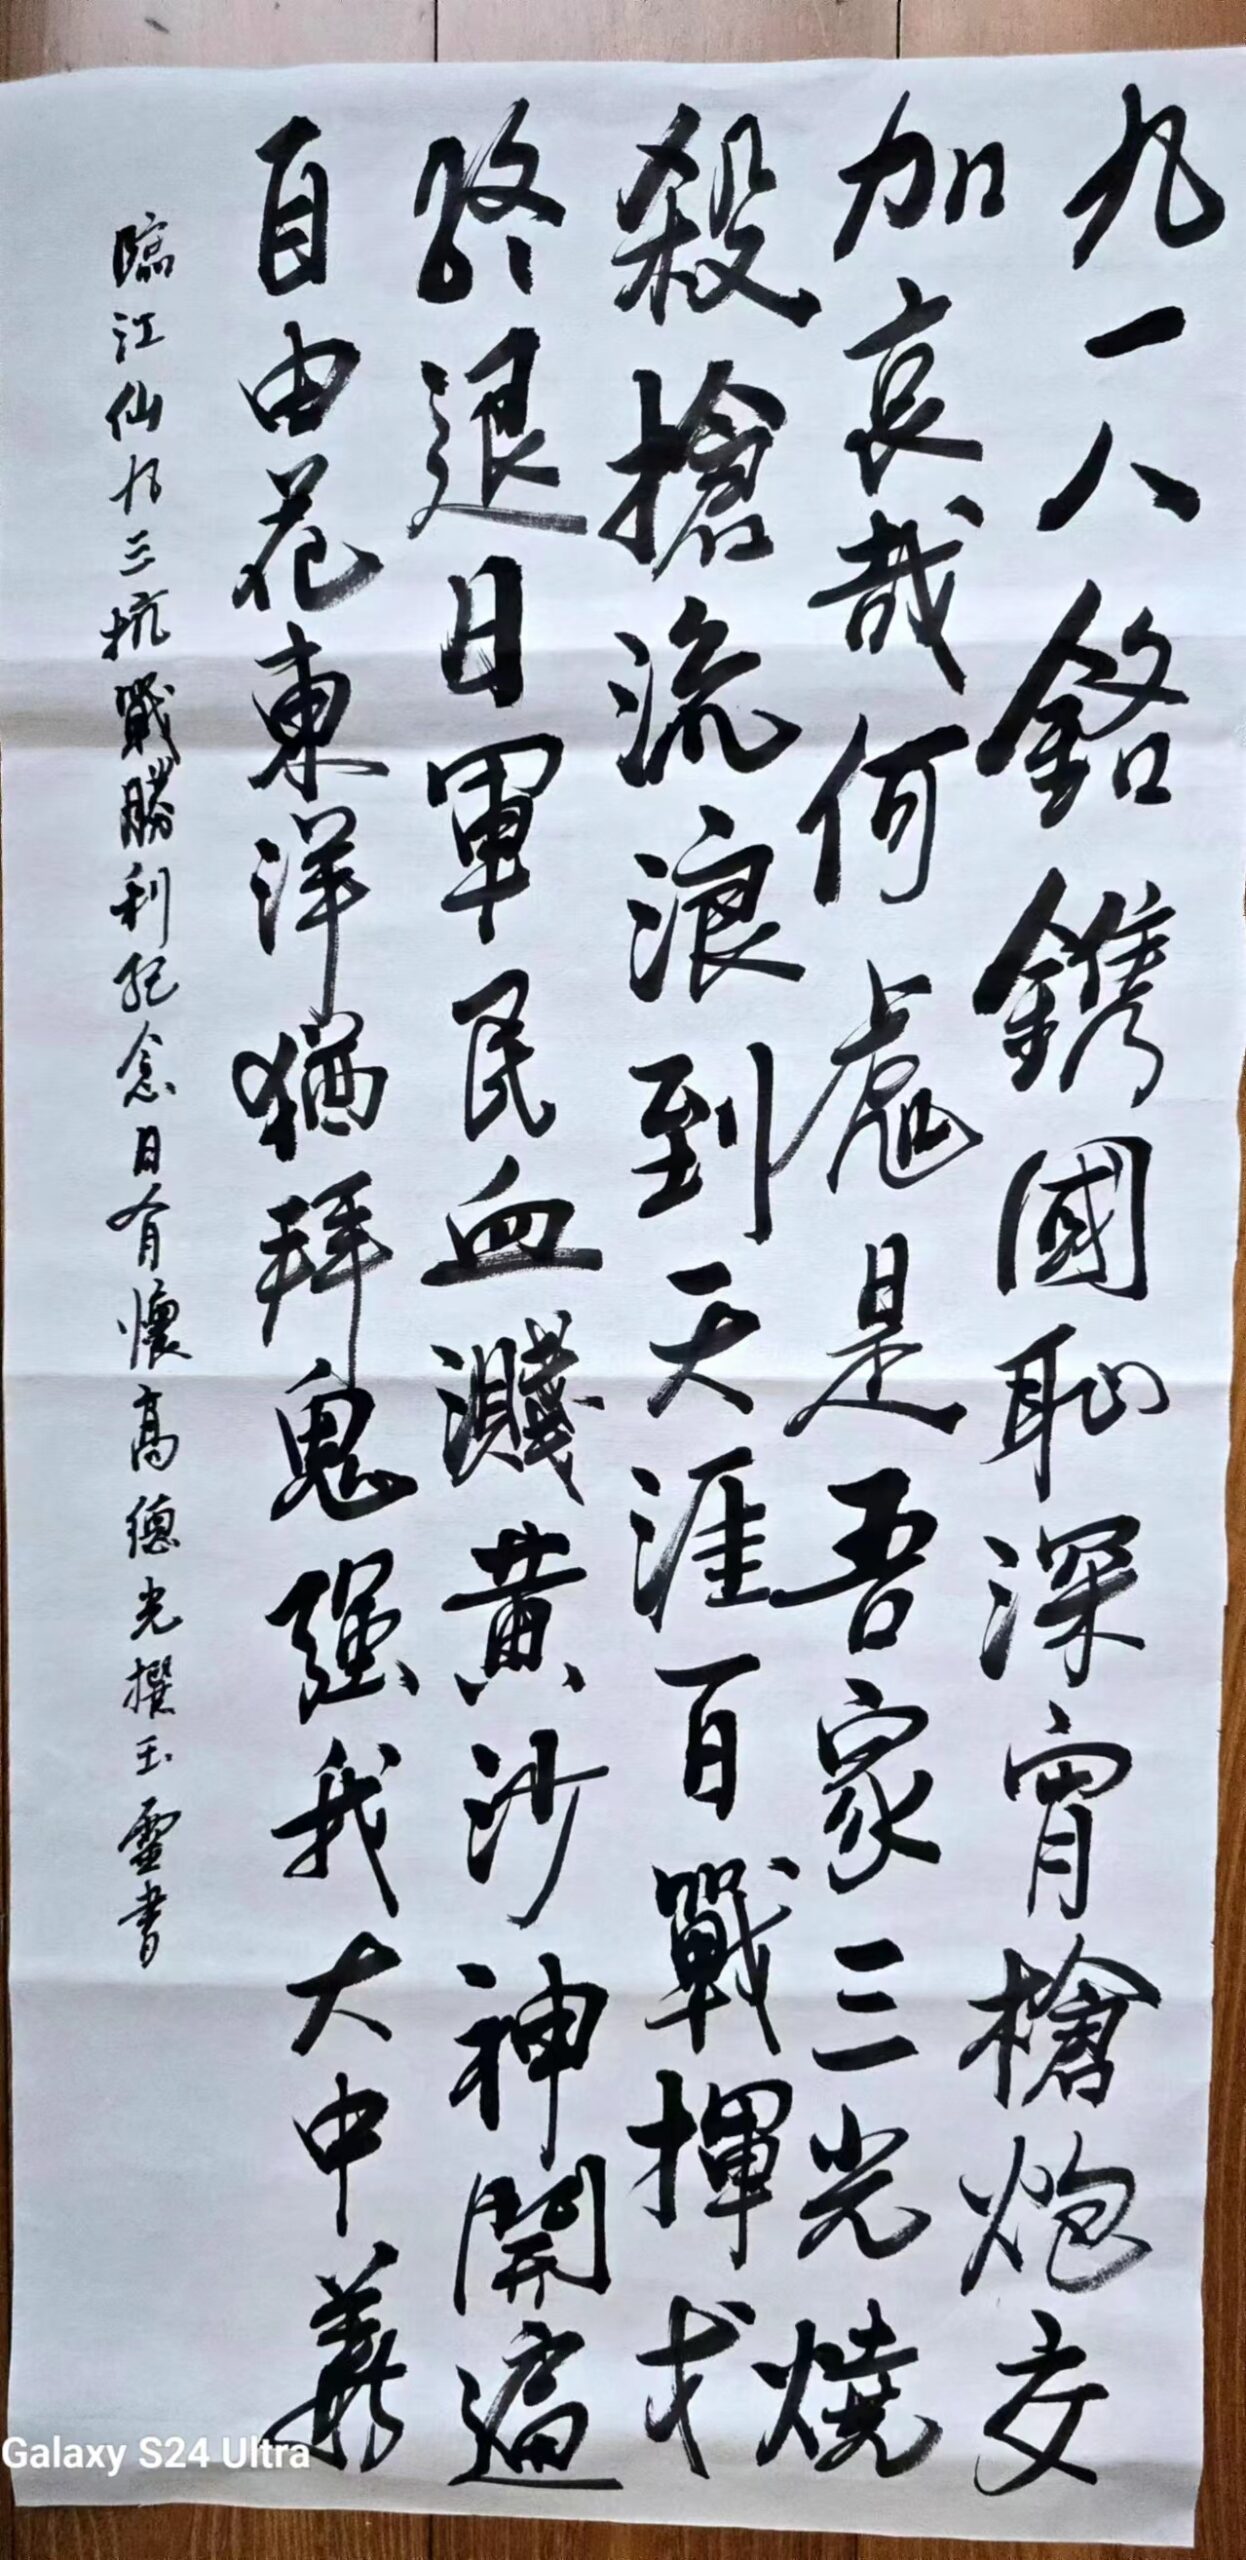 九一八銘鐫國恥深宵槍炮交
加哀哉何處是吾家三光燒
殺搶流浪到天涯百戰揮戈
終退日軍民血濺黃沙神開遍
自由花東洋猶拜鬼强我大中華
臨江仙九三抗戰勝利紀念日有懷高德光撰玉靈書
Galaxy S24 Ultra